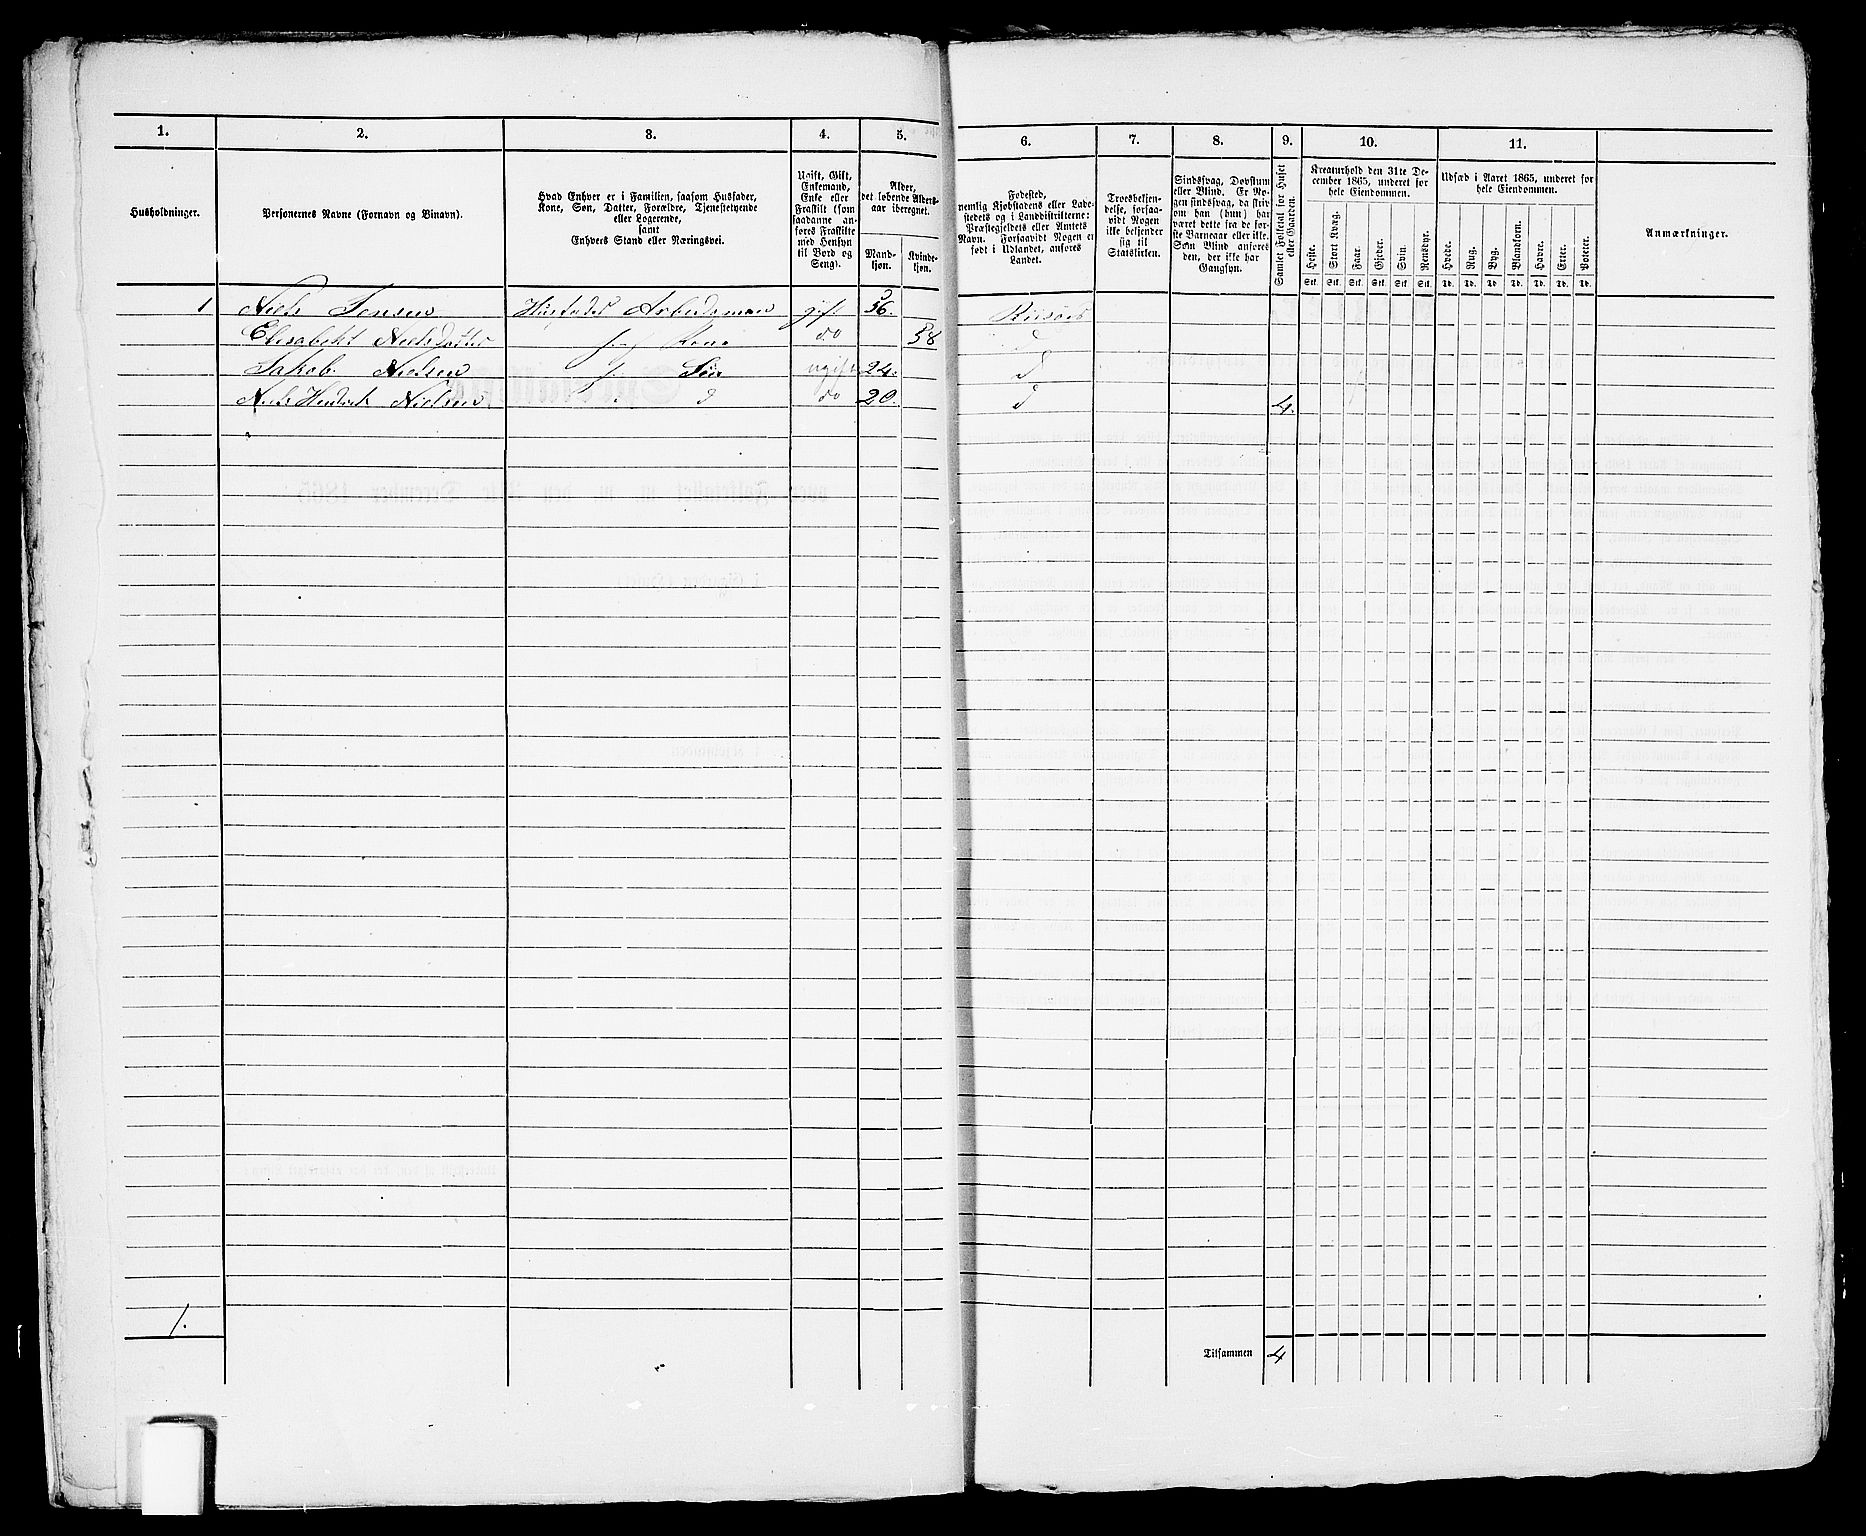 1. 2. 3. 4. 5. 6. 7. 8. 9. 10. 11.
Husholdninger.
Personernes Navne (Fornavn og Binavn).
Hvad Enhver er i Familien, saasom Husfader,
Kone, Søn, Datter, Forældre, Tjenestetyende
eller Logerende,
samt
Enhvers Stand eller Næringsvei.
Ugift, Gift,
Enkemand,
Enke eller
Fraskilt (som
saadanne an-
føres Fraskilte
med Hensyn
til Bord og
Seng).
Alder,
det løbende Alders-
aar iberegnet.
Mand-
kjøn.
Kvinde-
kjøn.
Fødested,
nemlig Kjøbstadens eller Lade-
stedets og i Landdistrikterne:
Præstegjeldets eller Amtets
Navn. Forsaavidt Nogen er
født i Udlandet, anføres
Landet.
Troesbekjen-
delse, forsaa-
vidt Nogen
ikke bekjender
sig til
Statskirken.
Sindssvag, Døvstum
eller Blind. Er No-
gen sindssvag, da skriv
om han (hun) har
været dette fra de før-
ste Barneaar eller ikke.
Som Blind anføres
den, der ikke har
Gangsyn.
Samlet Folketal for Huset
eller Gaarden.
Kreaturhold den 31te De-
cember 1865, underet for
hele Eiendommen.
Heste. Stort Kvæg. Faar. Gjeder. Svin. Rensdyr.
Stk. Stk. Stk. Stk. Stk. Stk.
Udsæd i Aaret 1865, underet for
hele Eiendommen.
Hvede. Rug. Byg. Blandkorn. Havre. Erter. Poteter.
Td. Td. Td. Td. Td. Td. Td.
Anmærkninger.
1 Niels Jensen Husfader Arbeidsman gift 56. Riisöer
Elisabeht Nielsdatter Kone do 58 d
Jakob Nielsen Søn ugift 24. d
Niels Hendrik Nielsen d do 20. d 4.
1.
Tilsammen 4